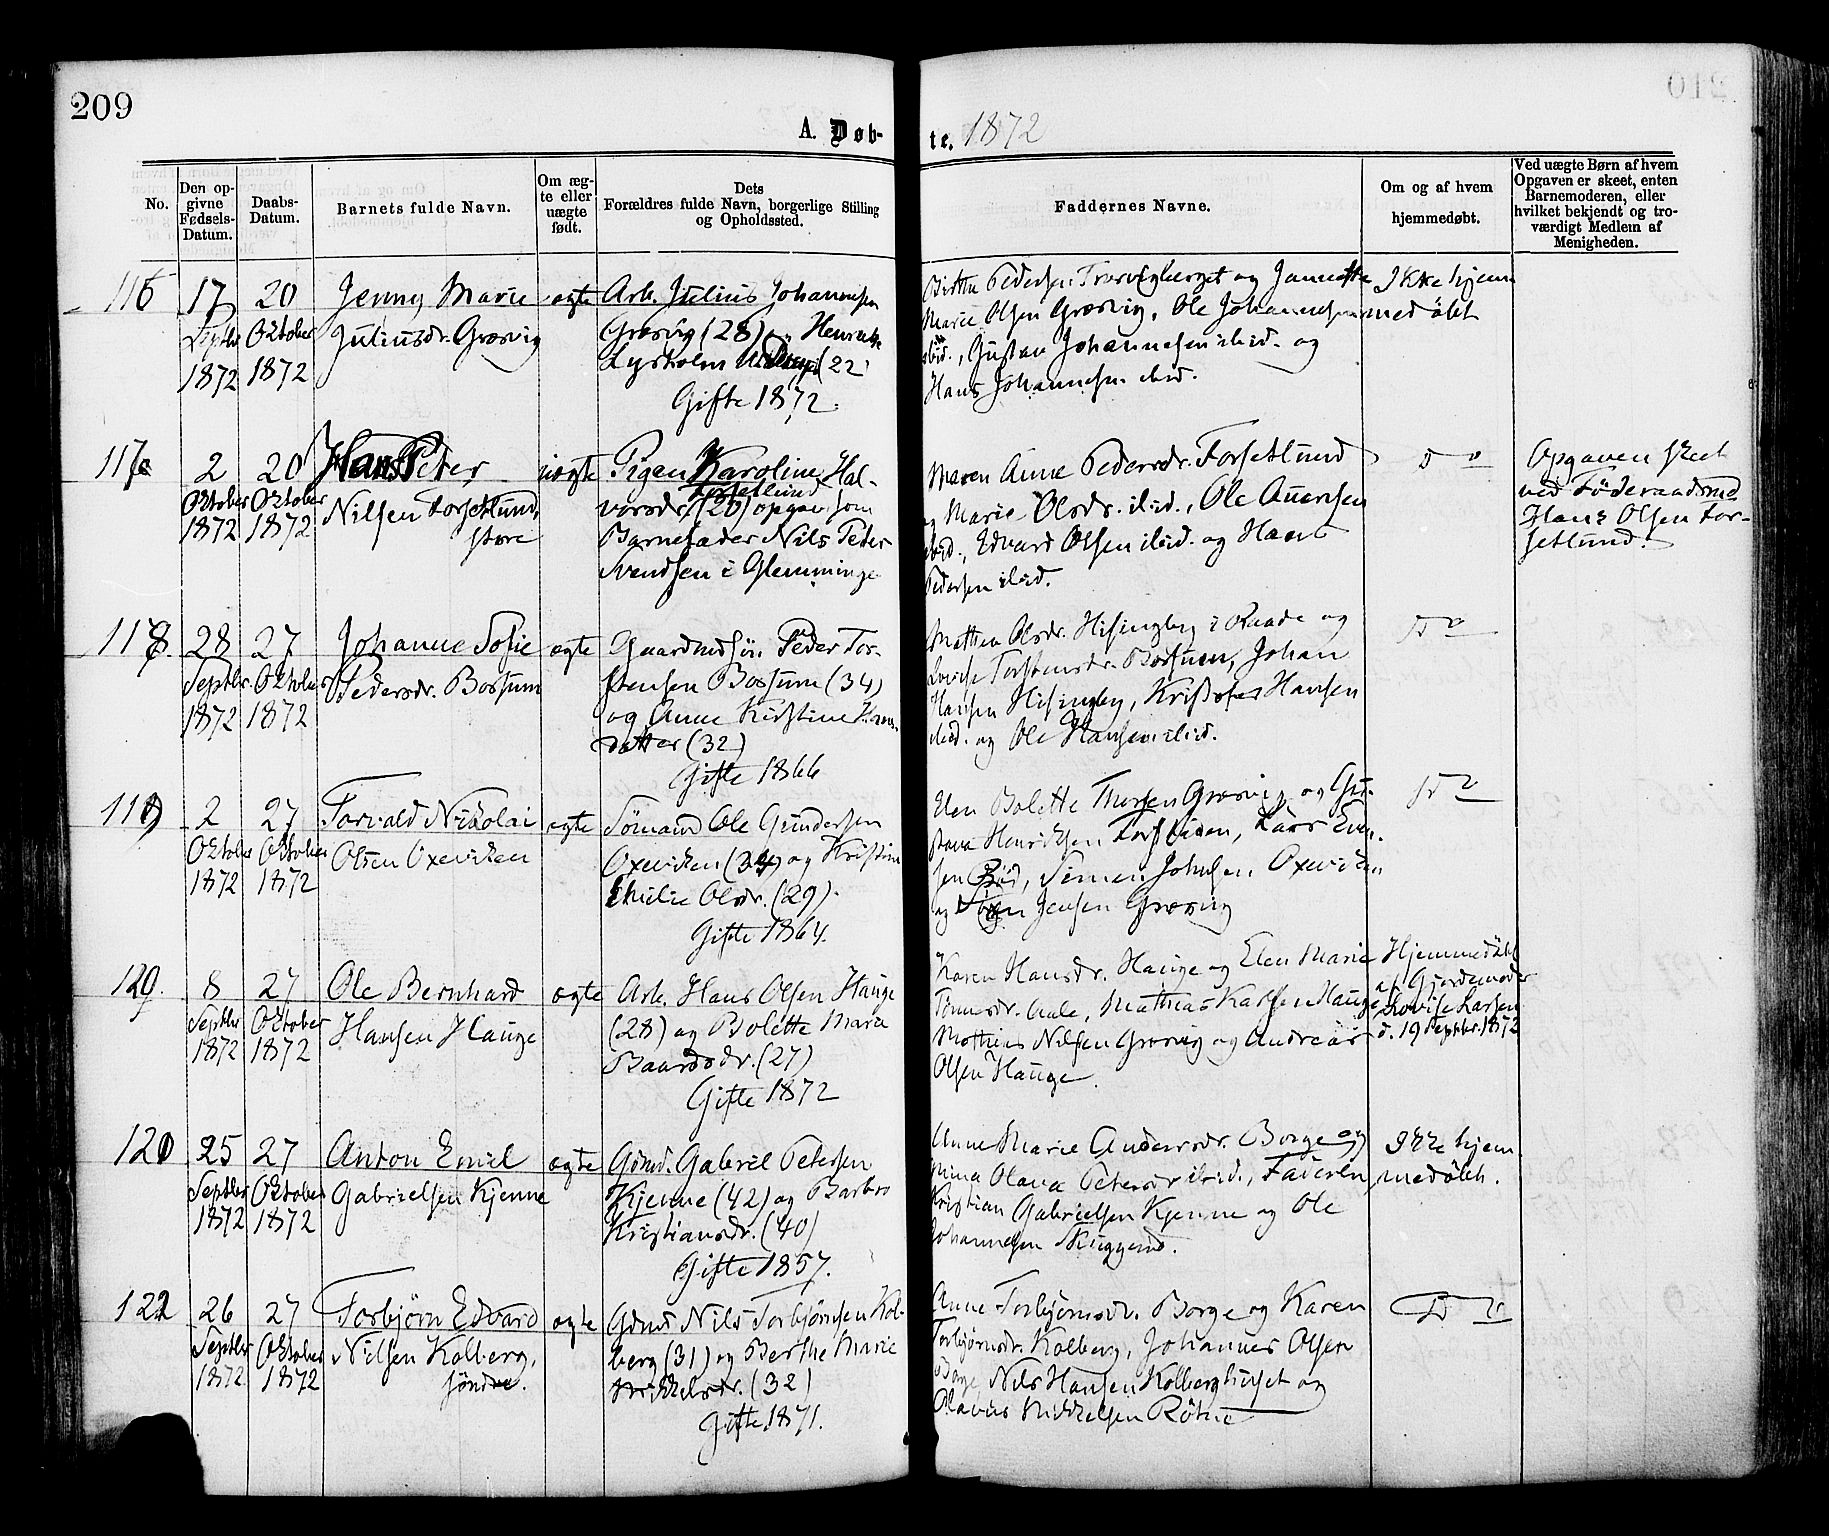 209
A. Døb-
te. 1872
No.
Den op-
givne
Fødsels-
Datum.
Daabs-
Datum.
Barnets fulde Navn.
Om æg-
te eller
uægte
født.
Dets
Forældres fulde Navn, borgerlige Stilling
og Opholdssted.
Faddernes Navne.
Om og af hvem
hjemmedøbt.
Ved uægte Børn af hvem
Opgaven er skeet, enten
Barnemoderen, eller
hvilket bekjendt og tro-
værdigt Medlem af
Menigheden.
116
17
Septbr
1872
20
Oktober
1872
Jenny Marie
Juliusdr. Græsvig
ægte
Arb. Julius Johannesen
Græsvig (28) og Henrikke
Lysholm (22)
Gifte 1872.
Pedersen og Jannette
Marie Olsen Græsvig, Ole Johannesen
ibid., Gustav Johannesen ibid. og
Hans Johannesen ibid.
Ikke hjem
medøbt
117
2
Oktober
1872
20
Oktober
1872
Hans Peter
Nilsen Torsetlund,
store
uægte
Pigen Karoline Hal-
Torsetlund
vorsdr. (20) opgav som
Barnefader Nils Peder
Svendsen i Glemminge
Maren Anne Pedersdr. Torsetlund
og Marie Olsdr. ibid., Ole
ibid., Edvard Olsen ibid. og Hans
Pedersen ibid.
Do
Opgaven skeet
ved Föderaadsmd
Hans Olsen Tor-
setlund.
118.
28
Septbr
1872
27
Oktober
1872
Johanne Sofie
Pedersdr. Bossum
ægte
Gaardmdsön Peder Tor-
stensen Bossum (34)
og Anne Kirstine
datter (32)
Gifte 1866
Mathea Olsdr. Hisingby i Raade og
Lovise Torstensdr. Bossum, Johan
Hansen Hisingby, Kristofer Hansen
ibid. og Ole Hansen ibid.
Do
119
2
Oktober
1872
27
Oktober
1872
Torvald Nikolai
Olsen Oxeviken
ægte
Sömand Ole Gundersen
Oxeviken (34) og Kristine
Emilie Olsdr. (29).
Gifte 1864.
Elen Bolette Thorsen Græsvig og Gu-
stava Henriksen, Lars Even-
sen, Simen Johnsen Oxeviken
og Jensen Græsvig
Do
120.
8
Septbr
1872
27
Oktober
1872
Ole Bernhard
Hansen Hauge
ægte
Arb. Hans Olsen Hauge
(28) og Bolette Marie
Baardsdr. (27)
Gifte 1872
Karen Hansdr. Hauge og Elen Marie
Tönnesdr. Aale, Mathias Karlsen Hauge,
Mathias Nilsen Græsvig og Andreas
Olsen Hauge.
Hjemmedöbt
af Gjordemoder
Lovise Larsen
d. 19 Septbr. 1872
121
25
Septbr
1872
27
Oktober
1872
Anton Emil
Gabrielsen Kjenne
ægte
Gdmd. Gabriel Petersen
Kjenne (42) og Barbro
Kristiansdr. (40)
Gifte 1857.
Anne Marie Andersdr. Borge og
Mina Olava Petersdr ibid., Faderen,
Kristian Gabrielsen Kjenne og Ole
Johannesen Skuggevid.
Ikke hjem
medöbt.
122
26
Septbr
1872
27
Oktober
1872
Torbjörn Edvard
Nilsen Kolberg,
söndre.
ægte
Gdmd Nils Torbjörnsen Kol-
berg (31) og Berthe Marie
Mikkelsdr. (32)
Gifte 1871.
Anne Torbjörnsdr. Borge og Karen
Torbjörnsdr. Kolberg, Johannes Olsen
Borge, Nils Hansen Kolberghuset og
Olavus Mikkelsen Rötne
Do